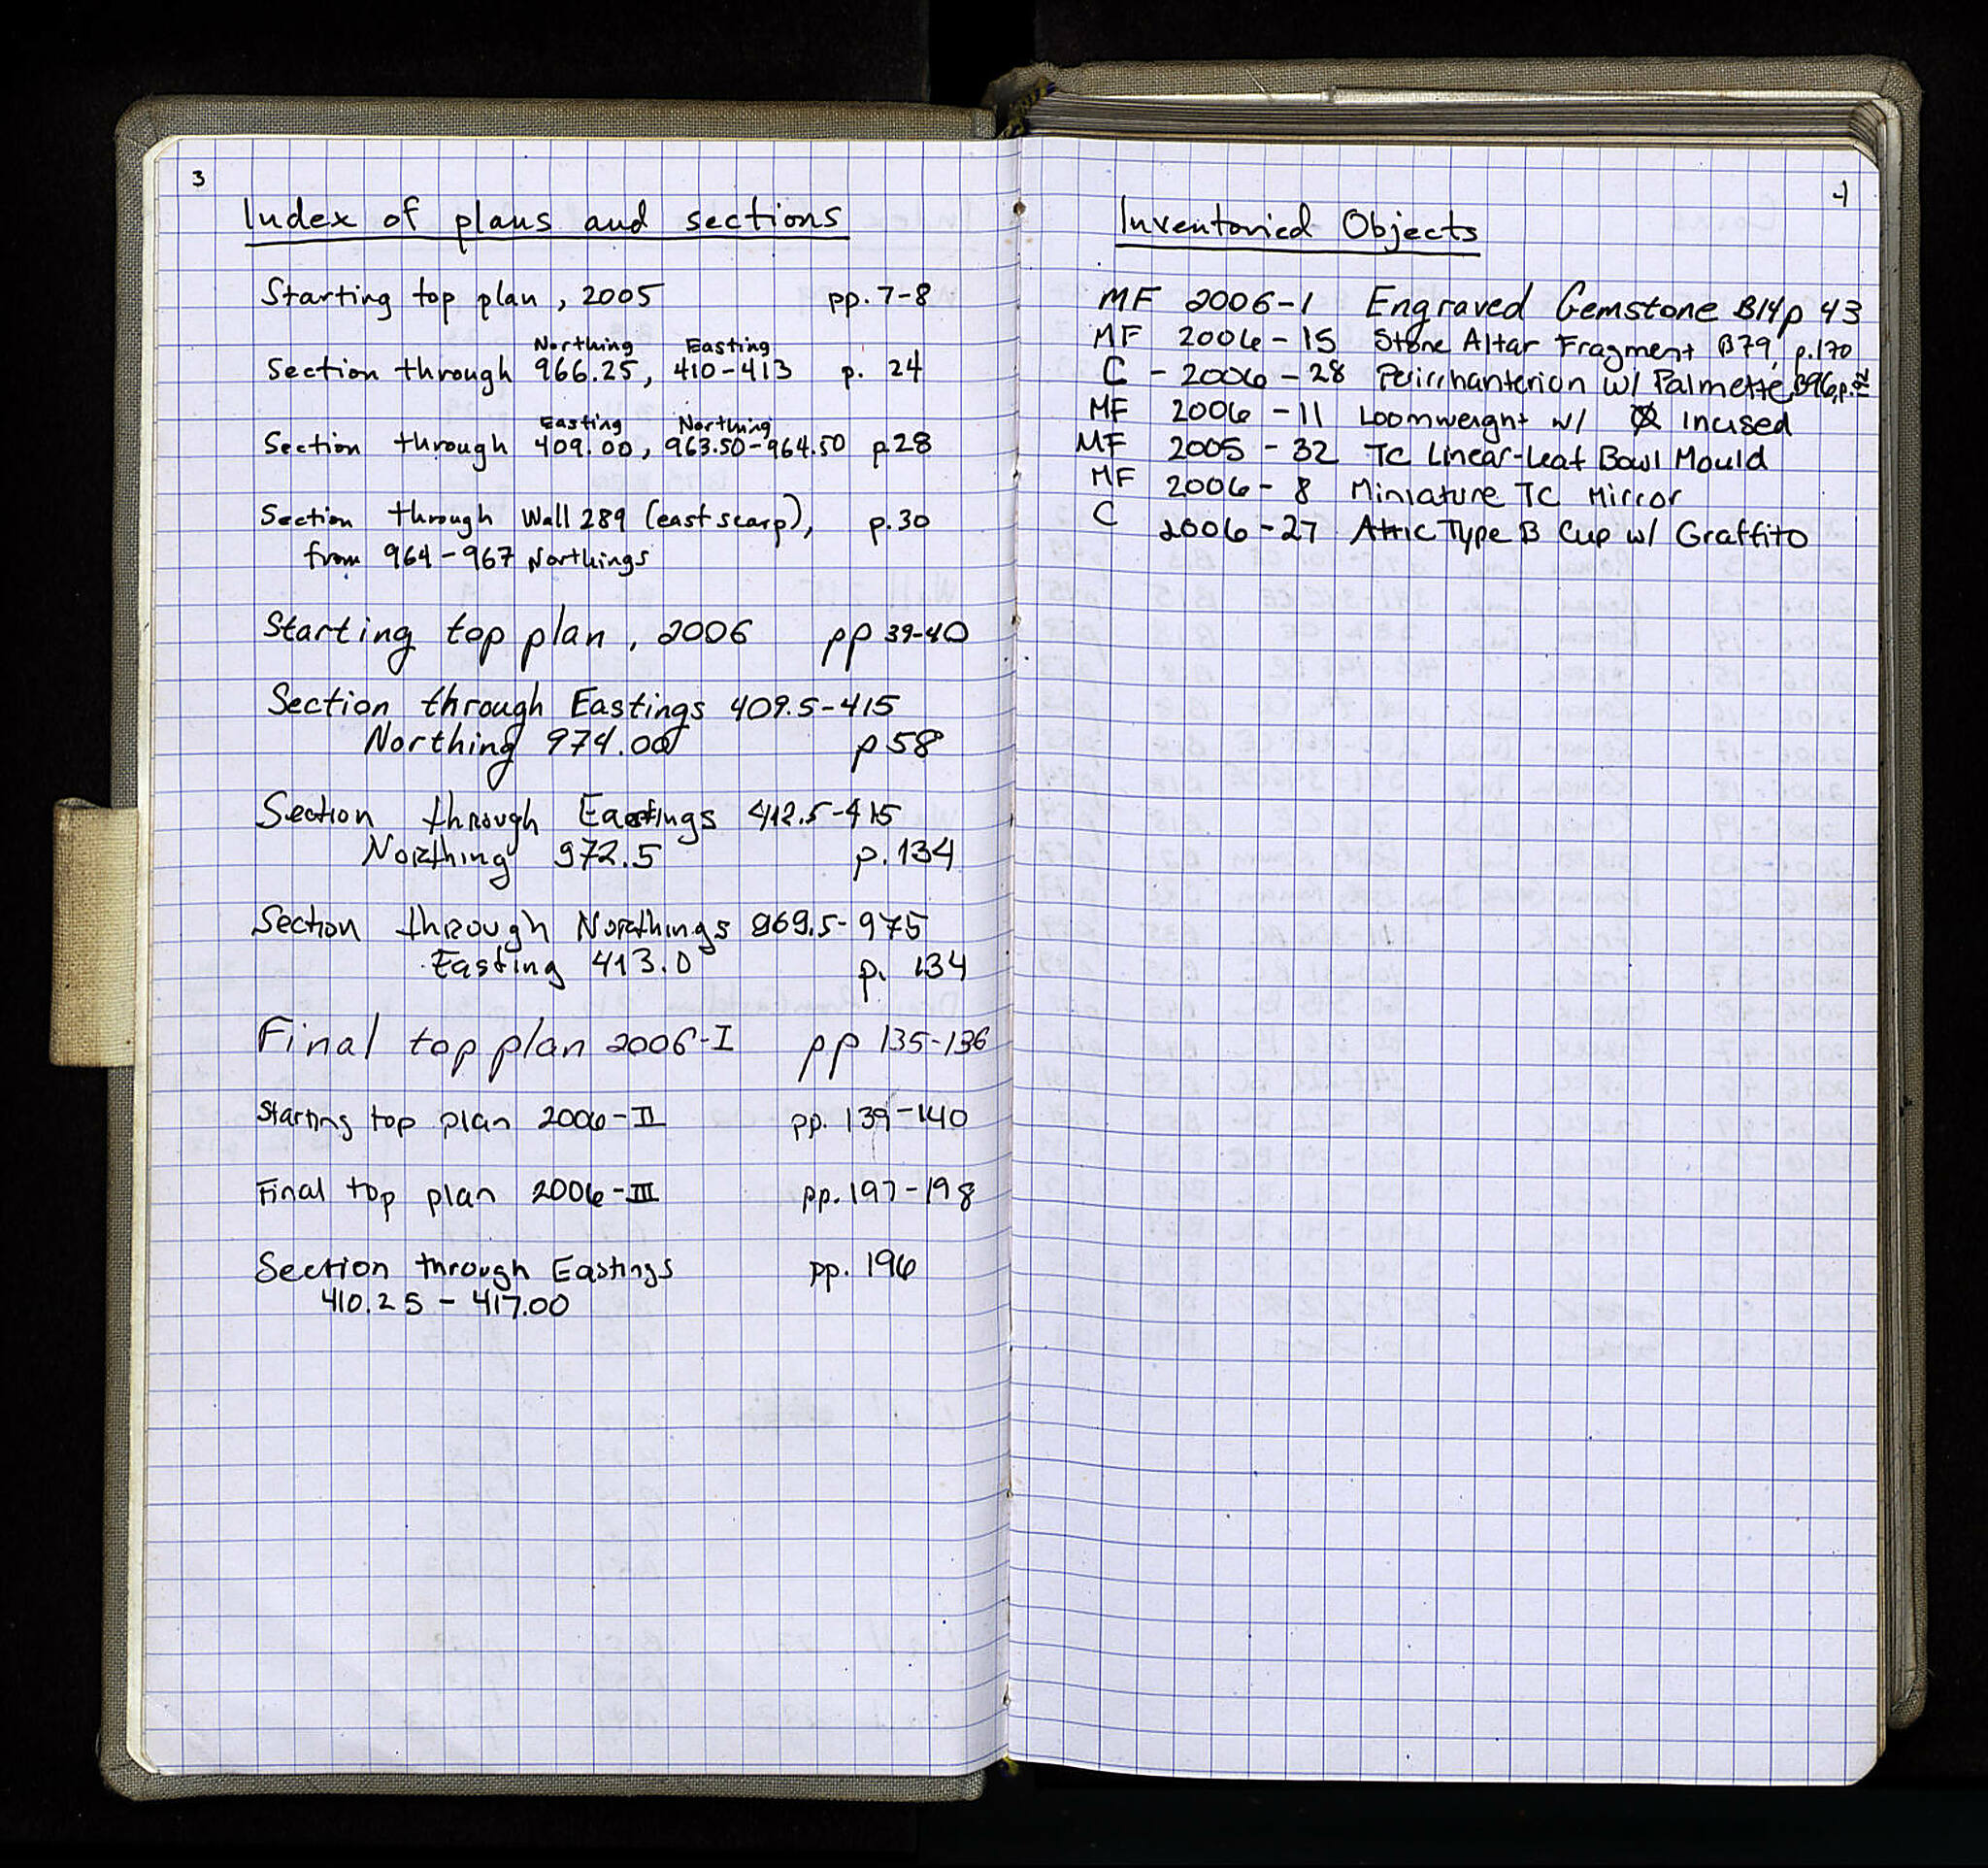 3
Index of plans and sections
Starting top plan, 2005 pp. 7-8
Northing Easting
Section through 966.25, 410-413 p. 24
Easting Northing
Section through 409.00, 963.50-964.50 p.28
Section through Wall 289 (east scarp), p.30
from 964-967 Northings
Starting top plan, 2006 pp 39-40
Section through Eastings 409.5-415
Northing 974.00 p58
Section through Eastings 412.5-415
Northing 972.5 p.134
Section through Northings 969.5-975
Easting 413.0 p. 134
Final top plan 2006-I pp 135-136
Starting top plan 2006-II pp. 139-140
Final top plan 2006-III pp. 197-198
Section through Eastings pp. 196
410.25 - 417.00
4
Inventoried Objects
MF 2006-1 Engraved Gemstone B14 p 43
MF 2006-15 Stone Altar Fragment B79, p.170
C - 2006-28 Peirrhanterion w/ Palmette, B96, p.
MF 2006-11 Loomweight w/ Incised
MF 2005-32 TC Linear-Leaf Bowl Mould
MF 2006-8 Miniature TC Mirror
C 2006-27 Attic Type B Cup w/ Graffito